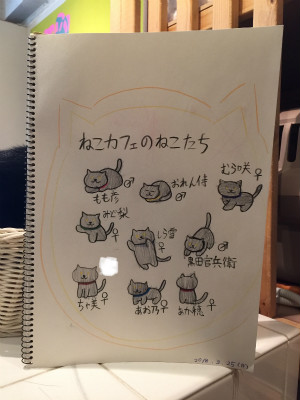 ねこカフェのねこたち
もも彦♂
おれん侍♂
むら咲♀
みど桜♀
しら雪♀
黒田官兵衛♂
ちゃ美♀
あお乃♀
あか穂♀